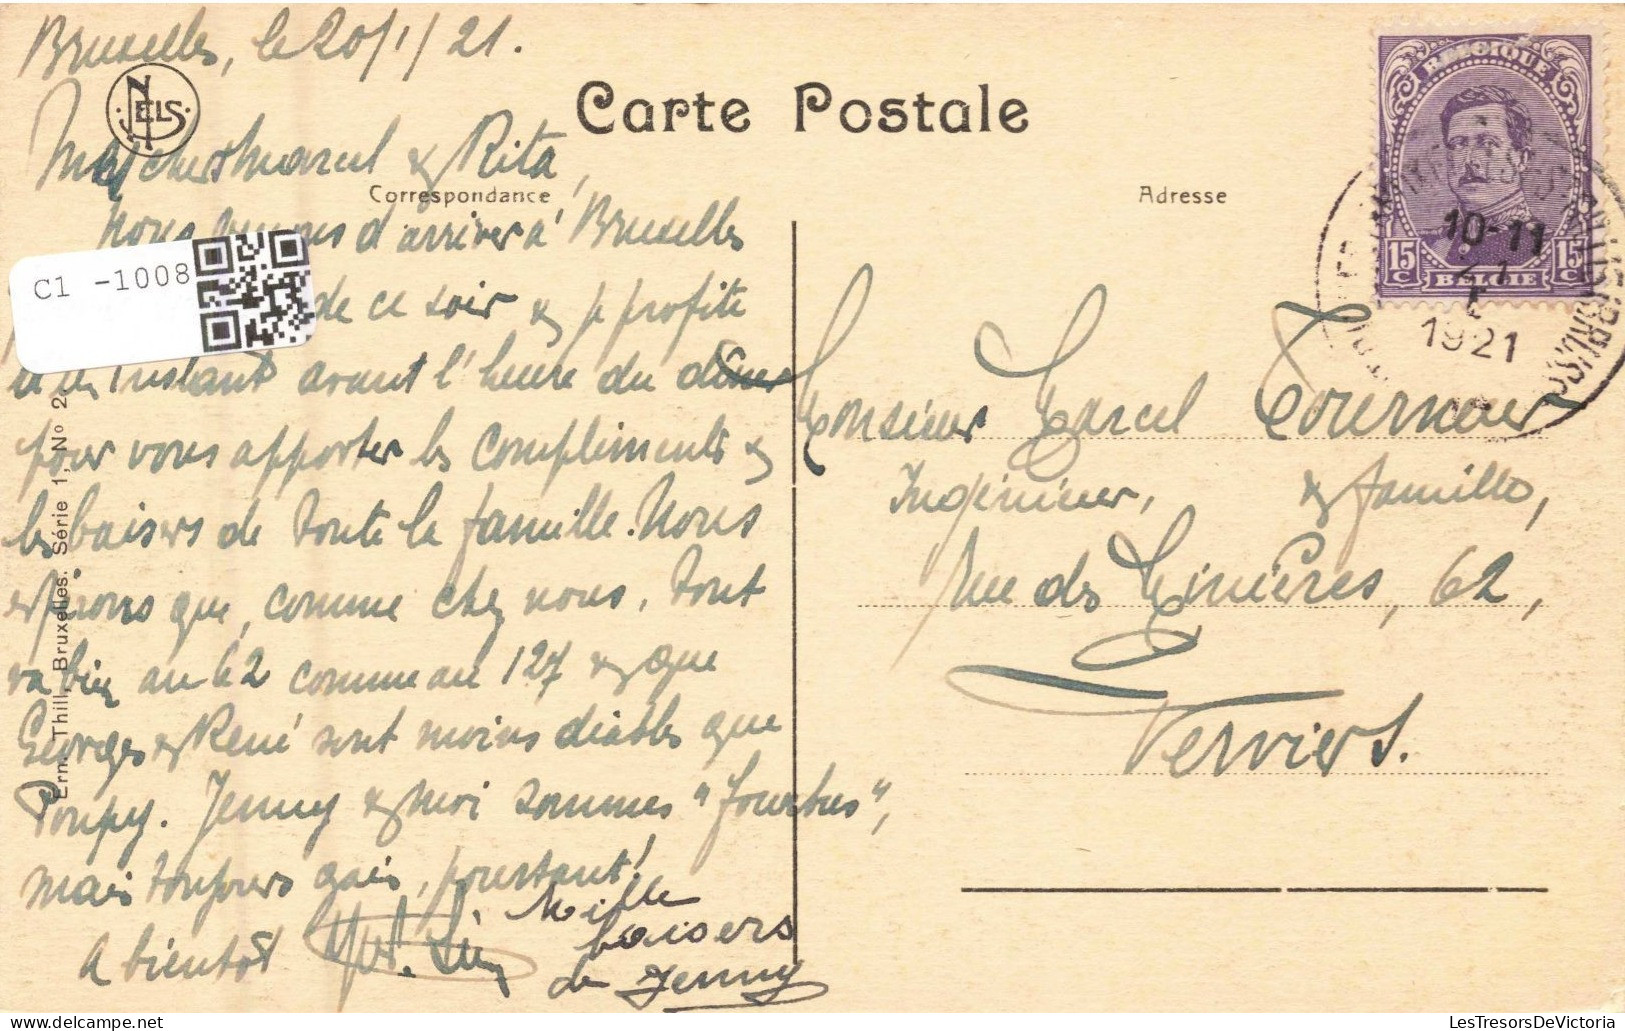 Bruxelles, le 20/1/21.
NELS
Carte Postale
Mes chers Marcel & Rita,
Correspondance
Adresse
Nous venons d'arriver à Bruxelles
de ce soir & je profite
d'un instant avant l'heure du dîner
pour vous apporter les compliments &
les baisers de toute la famille. Nous
espérons que, comme chez nous, tout
va bien au 62 comme au 127 & que
Georges & René sont moins diables que
Poupy. Jenny & moi sommes "fourbus",
mais toujours gais, pourtant!
A bientôt
Mille
baisers
de Jenny
Monsieur Marcel Tourneur
Ingénieur, & famille,
Rue des Minières, 62,
Verviers.
BELGIQUE
15 C 15 C
BELGIE
10-11
21
1921
C1 -1008
Ern. Thill, Bruxelles. Série 1, No 2
LesTresorsDeVictoria